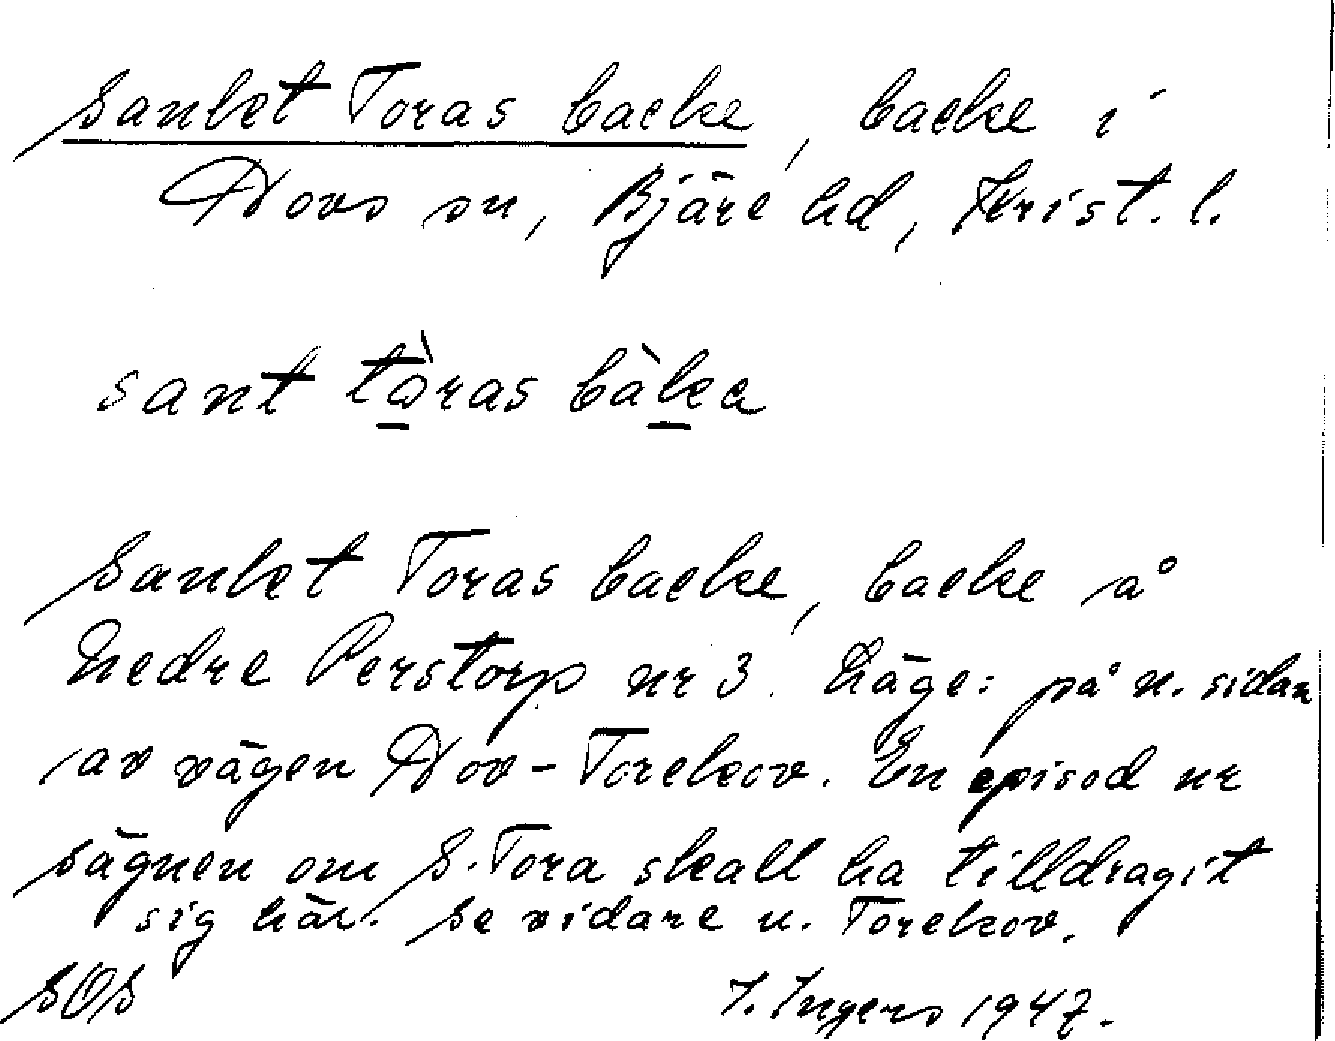 Sankt Toras backe, backe i
Hovs sn, Bjäre hd, Krist. l.
sant tòras bàka
Sankt Toras backe, backe å
Nedre Perstorp nr 3. Läge: på n. sidan
av vägen Hov - Torekov. En episod ur
sägnen om S. Tora skall ha tilldragit
sig här. Se vidare u. Torekov.
SOS
I. Ingers 1947.